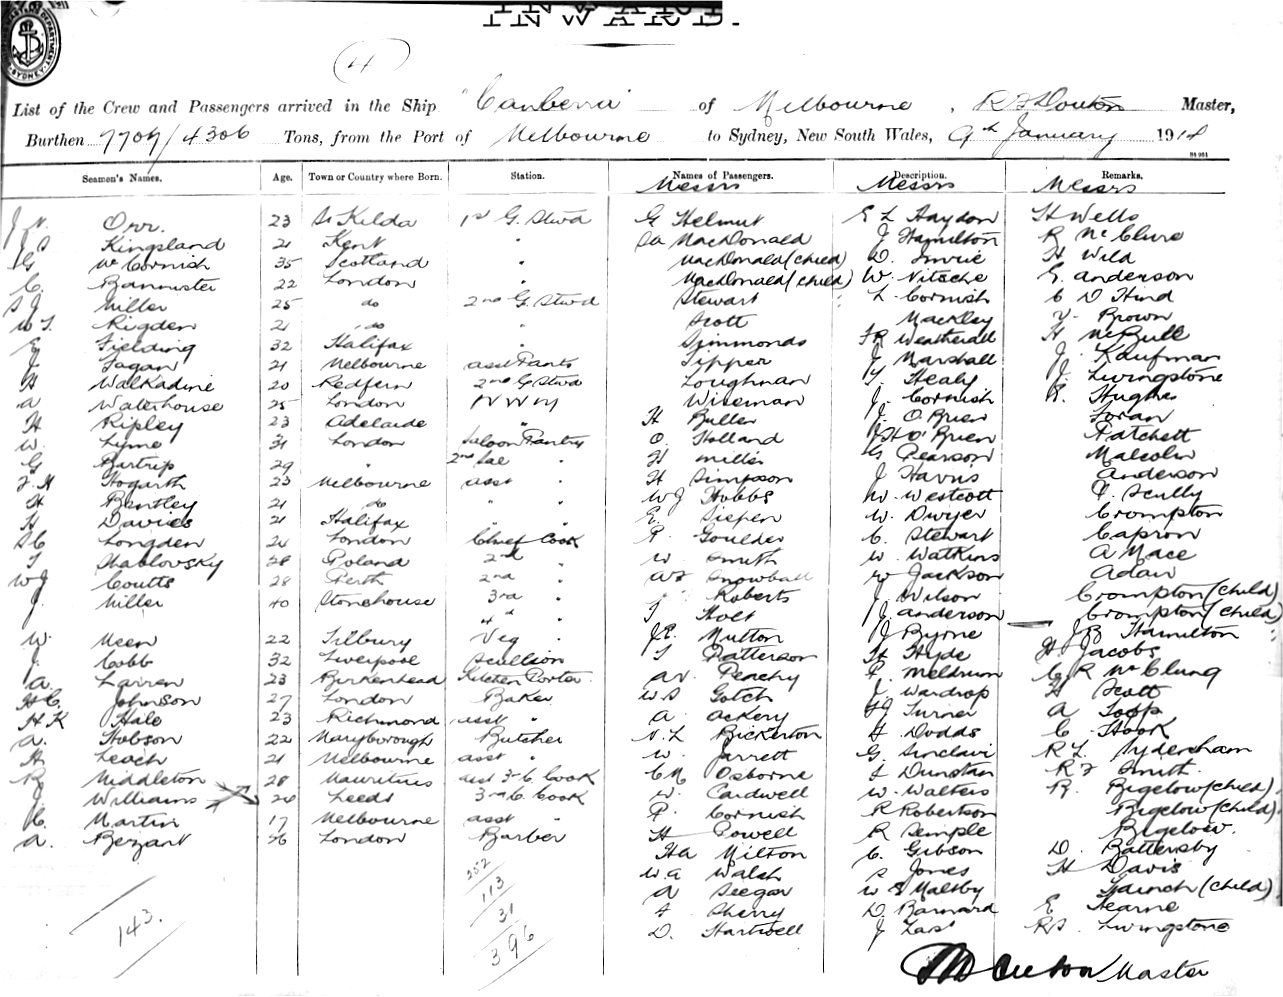 INWARD.
SYDNEY
(4)
List of the Crew and Passengers arrived in the Ship "Canberra" of Melbourne, Master,
Burthen 7709/4306 Tons, from the Port of Melbourne to Sydney, New South Wales, 9th January 1914
Seamen's Names. Age. Town or Country where Born. Station. Names of Passengers. Description. Remarks.
Messrs Messrs Messrs
Orr. 23 St Kilda 1st G. Stwd G Helmut E L Haydon H Wells
J S Kingsland 21 Kent " MacDonald J Hamilton R McClure
G McCornish 35 Scotland " MacDonald (child) D. Imrie H Wild
C. Bannister 22 London " MacDonald (child) W. Nitsche G. Anderson
S J Miller 25 do 2nd G. Stwd Stewart L. Cornish C D Hind
W T. Rigden 21 " do " Scott Mackley V. Brown
E Fielding 32 Halifax " Simmonds F R Weatherall H McBull
J Fagan 21 Melbourne asst Pants Tipper J Marshall J. Kaufman
H Walkadine 20 Redfern 2nd G Stwd Loughman T. Healy J. Livingstone
A Waterhouse 25 London Wiseman J. Cornish R. Hughes
H Ripley 23 Adelaide " H Buller J. O'Brien Foran
W. Lyme 31 London Saloon Pantry O. Holland J H O'Brien Patchett
G Bartrip 29 " 2nd Sal " H Mills G Pearson Malcolm
F. H Hogarth 23 Melbourne asst " H Simpson J Harris Anderson
H Bentley 21 do " " W J Hobbs W. Westcott P. Scully
H Davies 21 Halifax " " E. Siepen W. Dwyer Crompton
S C Longden 24 London Chief Cook P. Goulder C. Stewart Capron
T Shablovsky 28 Poland 2nd " W Smith W. Watkins A Mace
W J Coutts 28 Perth 2nd " Snowball W Jackson Adair
J. Miller 40 Stonehouse 3rd " Roberts J. Wilson Crompton (child)
4th " J Holt J. Anderson Crompton (child)
W. Meen 22 Tilbury Veg " J E. Mutton J Byrne J B Hamilton
J. Cobb 32 Liverpool Scullion T Patterson H Hyde H Jacobs
A. Larren 23 Birkenhead Kitchen Porter A V. Peachy F. Meldrum C R McClung
H C. Johnson 27 London Baker W S Gotch J Wardrop H Scott
H K Hale 23 Richmond asst " A. Ackery F G Turner A Topp
A. Hobson 22 Maryborough Butcher N. L Bickerton H Dodds C. Hook
H Leach 21 Melbourne asst " W Jarrett G. Sinclair R L Rydersham
B Middleton 28 Mauritius asst 3rd C Cook C M Osborne L Dunstan R J Smith
Williams 24 Leeds 3rd C. Cook W. Cardwell W. Walters R. Bigelow (child)
C. Martin 17 Melbourne asst " P. Cornish R Robertson Bigelow (child)
A. Bezant 46 London Barber H Powell R Semple Bigelow.
H A Milton C. Gibson D. Battersby
252 W. A Walsh S Jones H Davis
113 A Seegar W S Maltby (child)
143. 31 F Sherry D. Barnard E Hearne
396 D. Hartwell J Last R S. Livingstone
Master